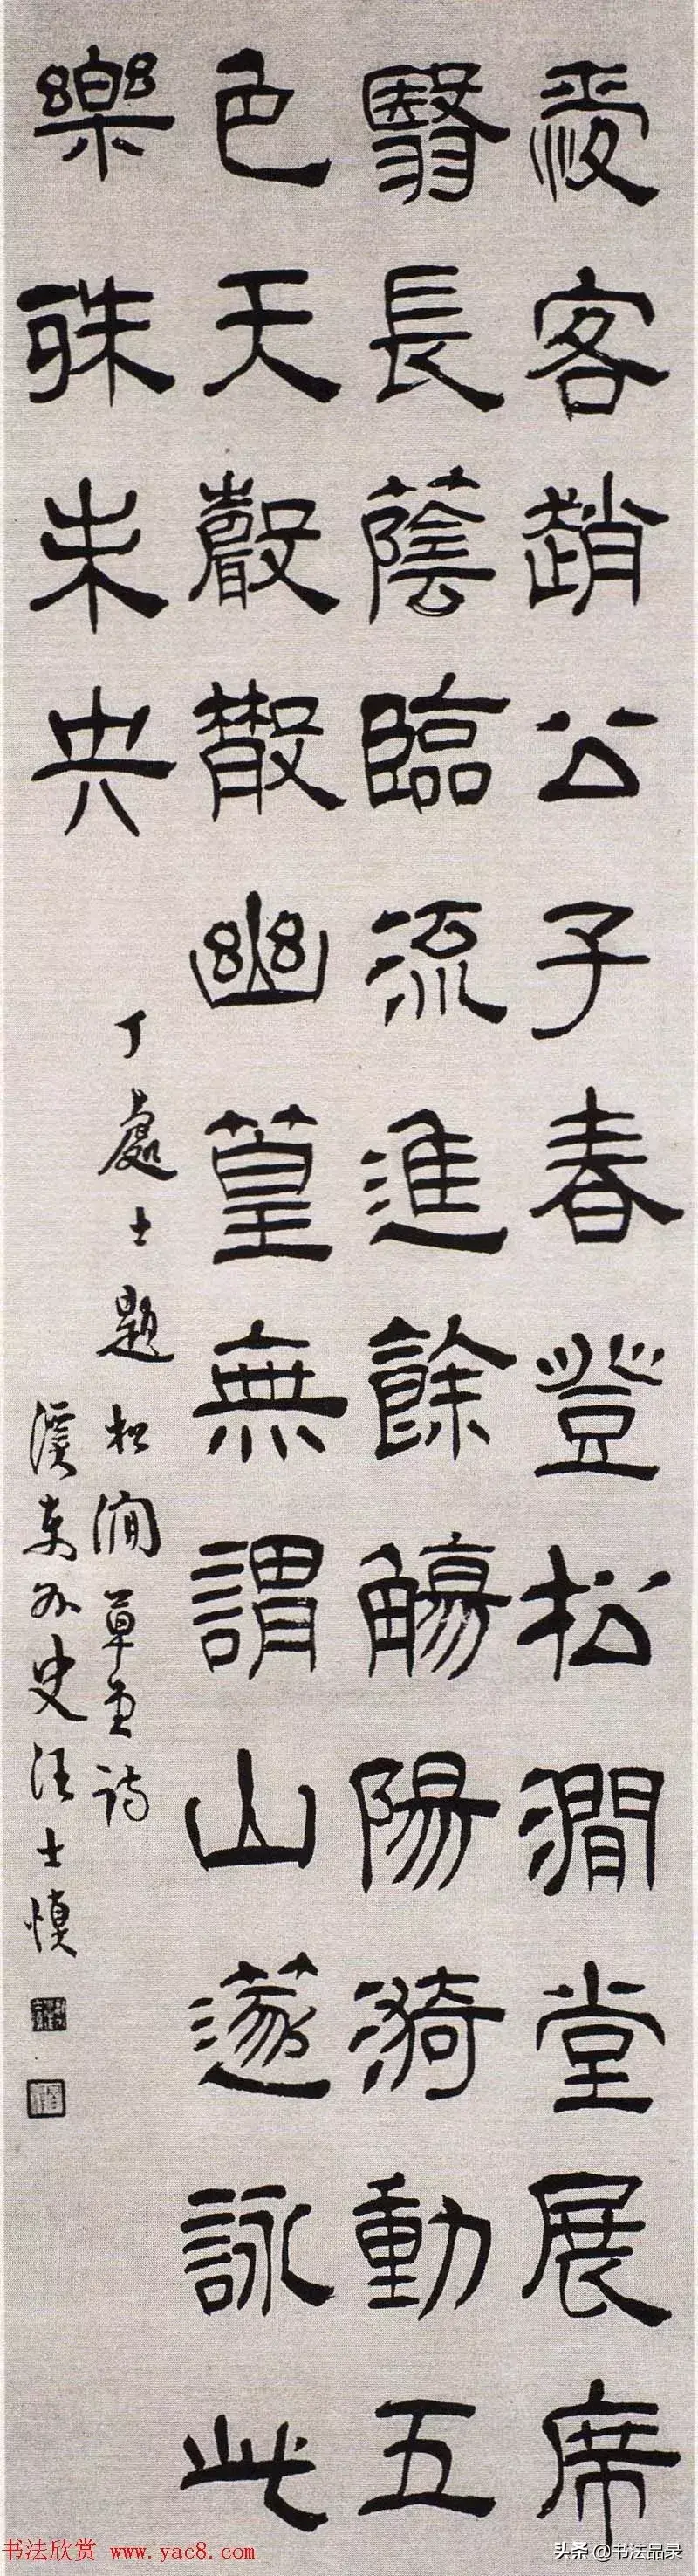 愛客趙公子春登松澗堂展席
翳長蔭臨流進餘觴陽漪動五
色天聲散幽篁無謂山遂詠此
樂殊未央
丁處士題松澗草堂詩
溪東外史汪士慎
书法欣赏 www.yac8.com
头条 @书法品录